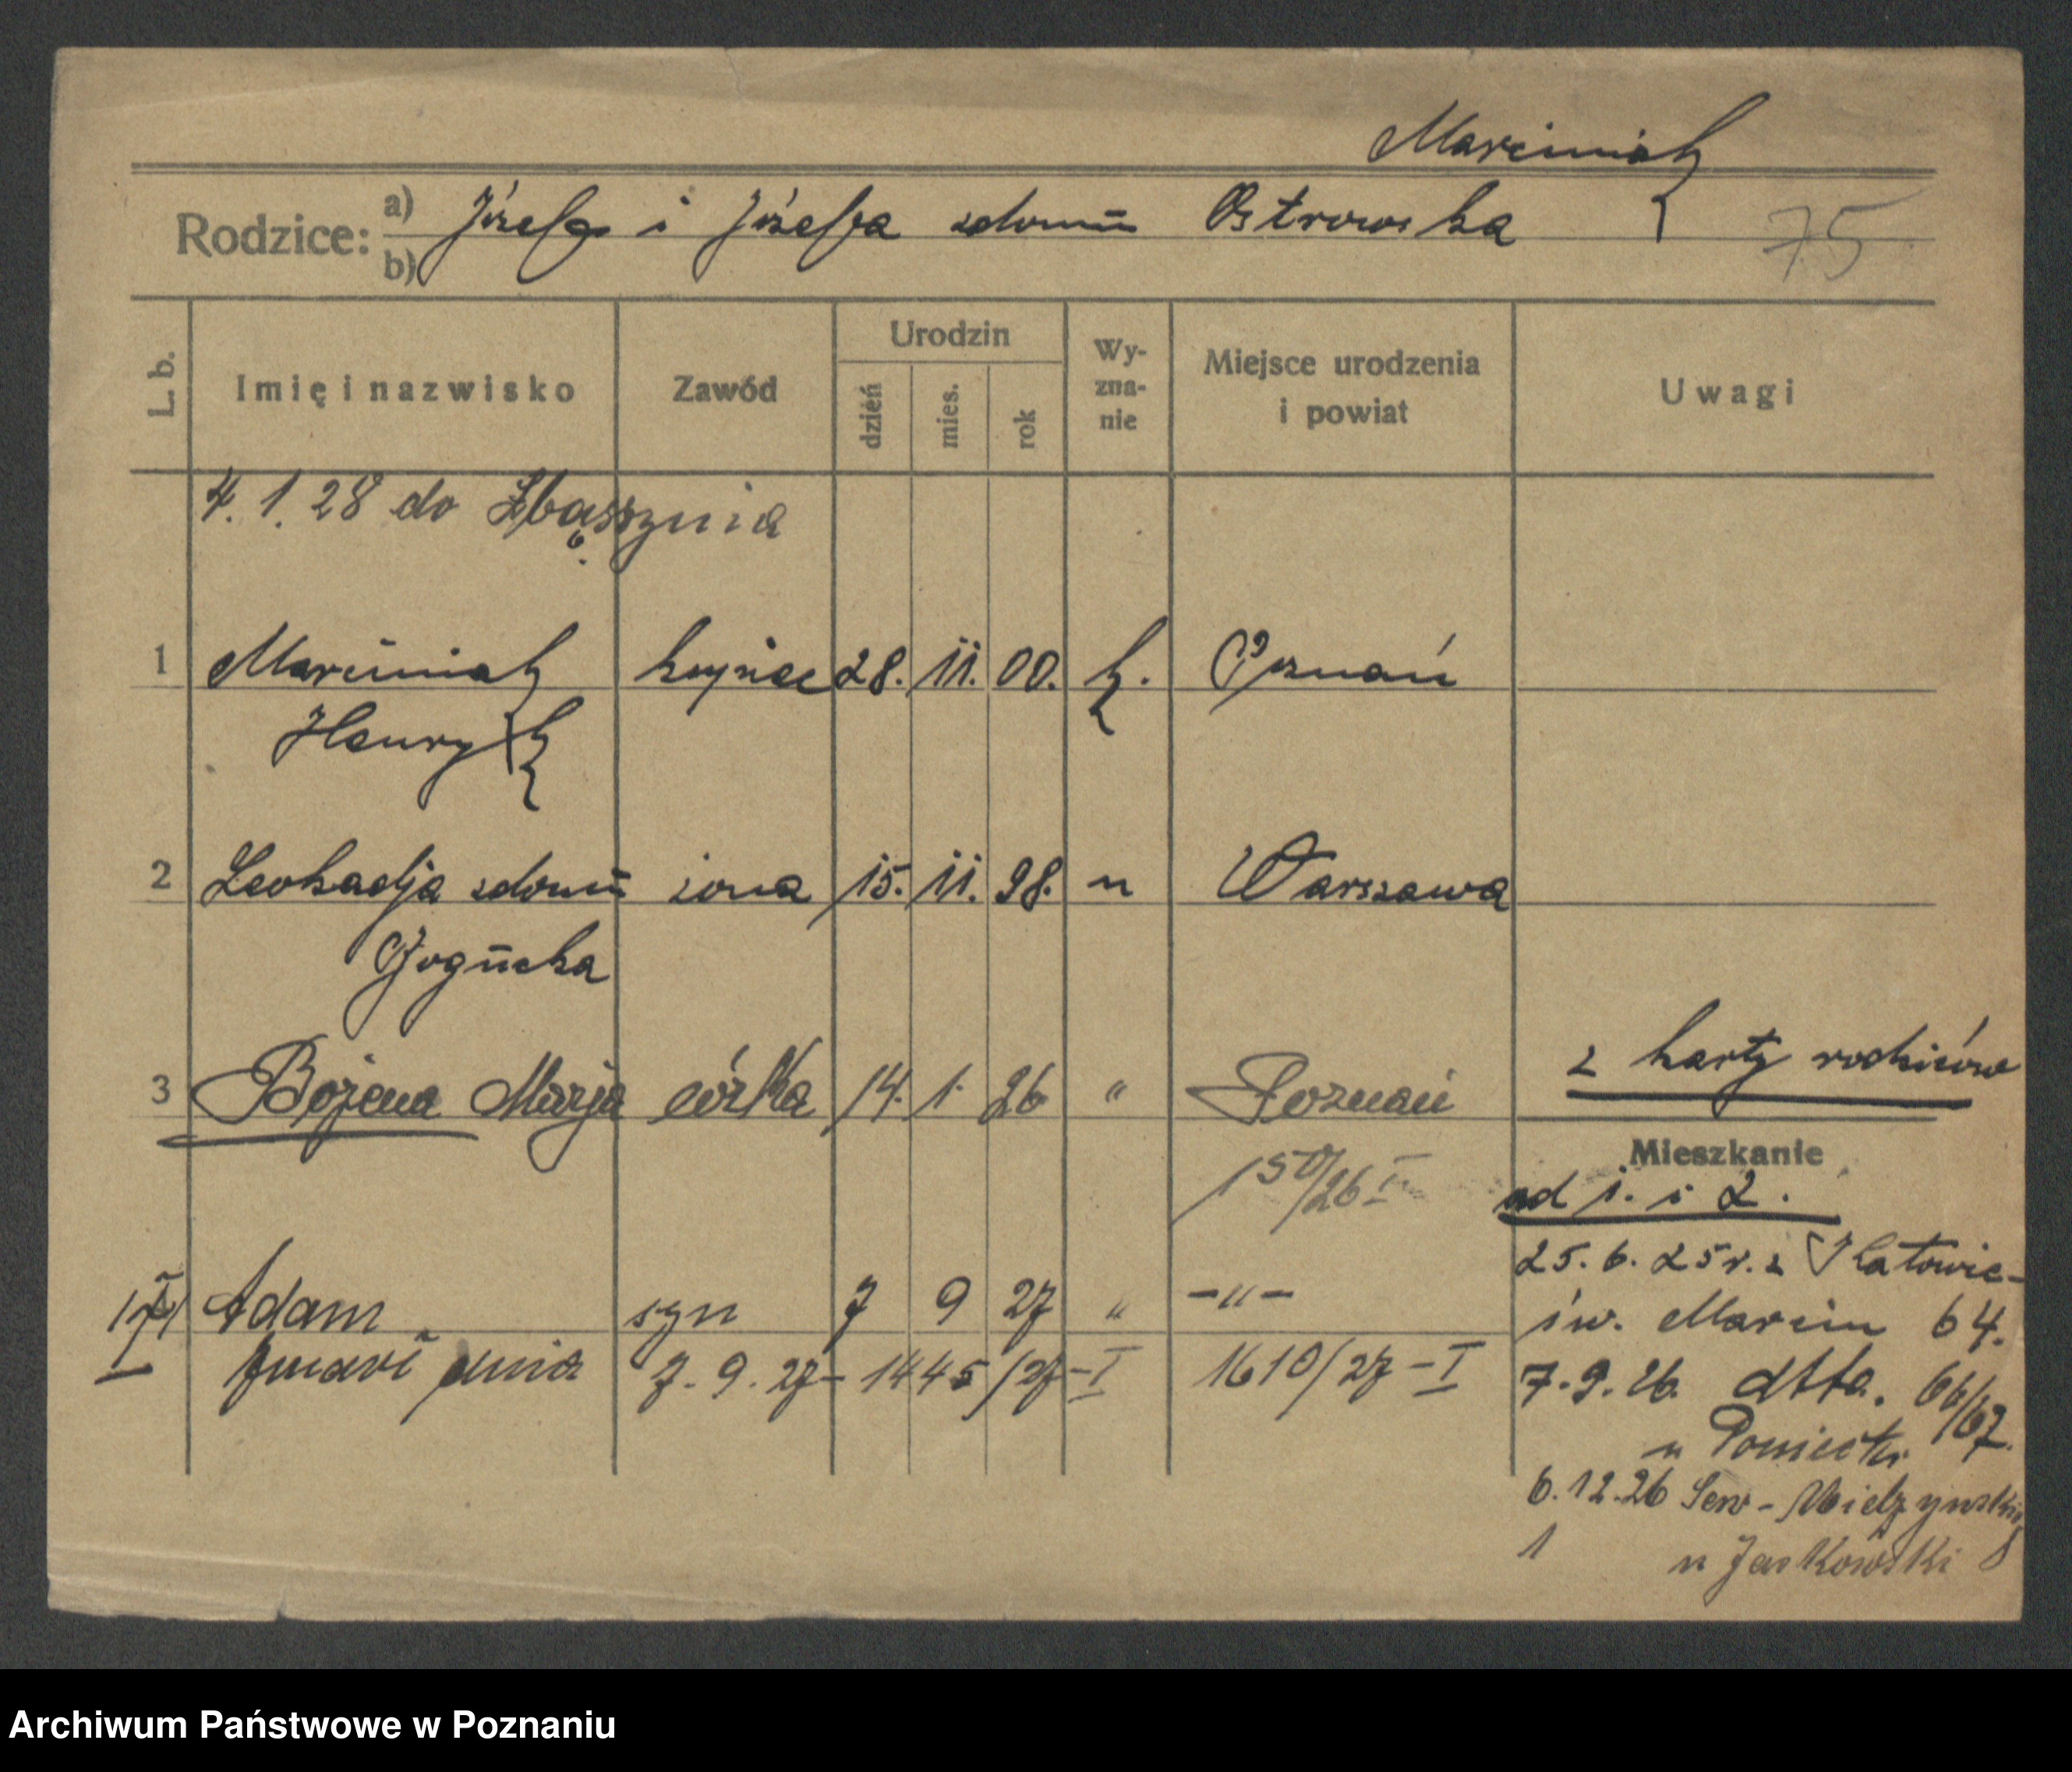 Marciniak
Rodzice: a) Józef i Józefa zdomu Ostrowska
75
b)
L. b. Imię i nazwisko Zawód Urodzin dzień mies. rok Wy-zna-nie Miejsce urodzenia i powiat Uwagi
4. 1. 28 do Zbąsznia
1 Marciniak kupiec 28. 11. 00. k. Poznań
Henryk
2 Leokadja zdomu żona 15. 11. 98. " Warszawa
3 Bożena Marja córka 14. 1. 26 " Poznań
z karty rodziców
150/26 I
Mieszkanie
ad 1. i 2.
25. 6. 25 r. z Katowic-
Adam syn 7 9 27 " -"-
św. Marcin 64.
Zmarł dnia 7. 9. 27 - 1445/27-I 1610/27-I
7. 9. 26. dtto. 66/67.
u Poniecki
6. 12. 26 Sew-Mielżyńskiego
1 u Jaskowski
Archiwum Państwowe w Poznaniu